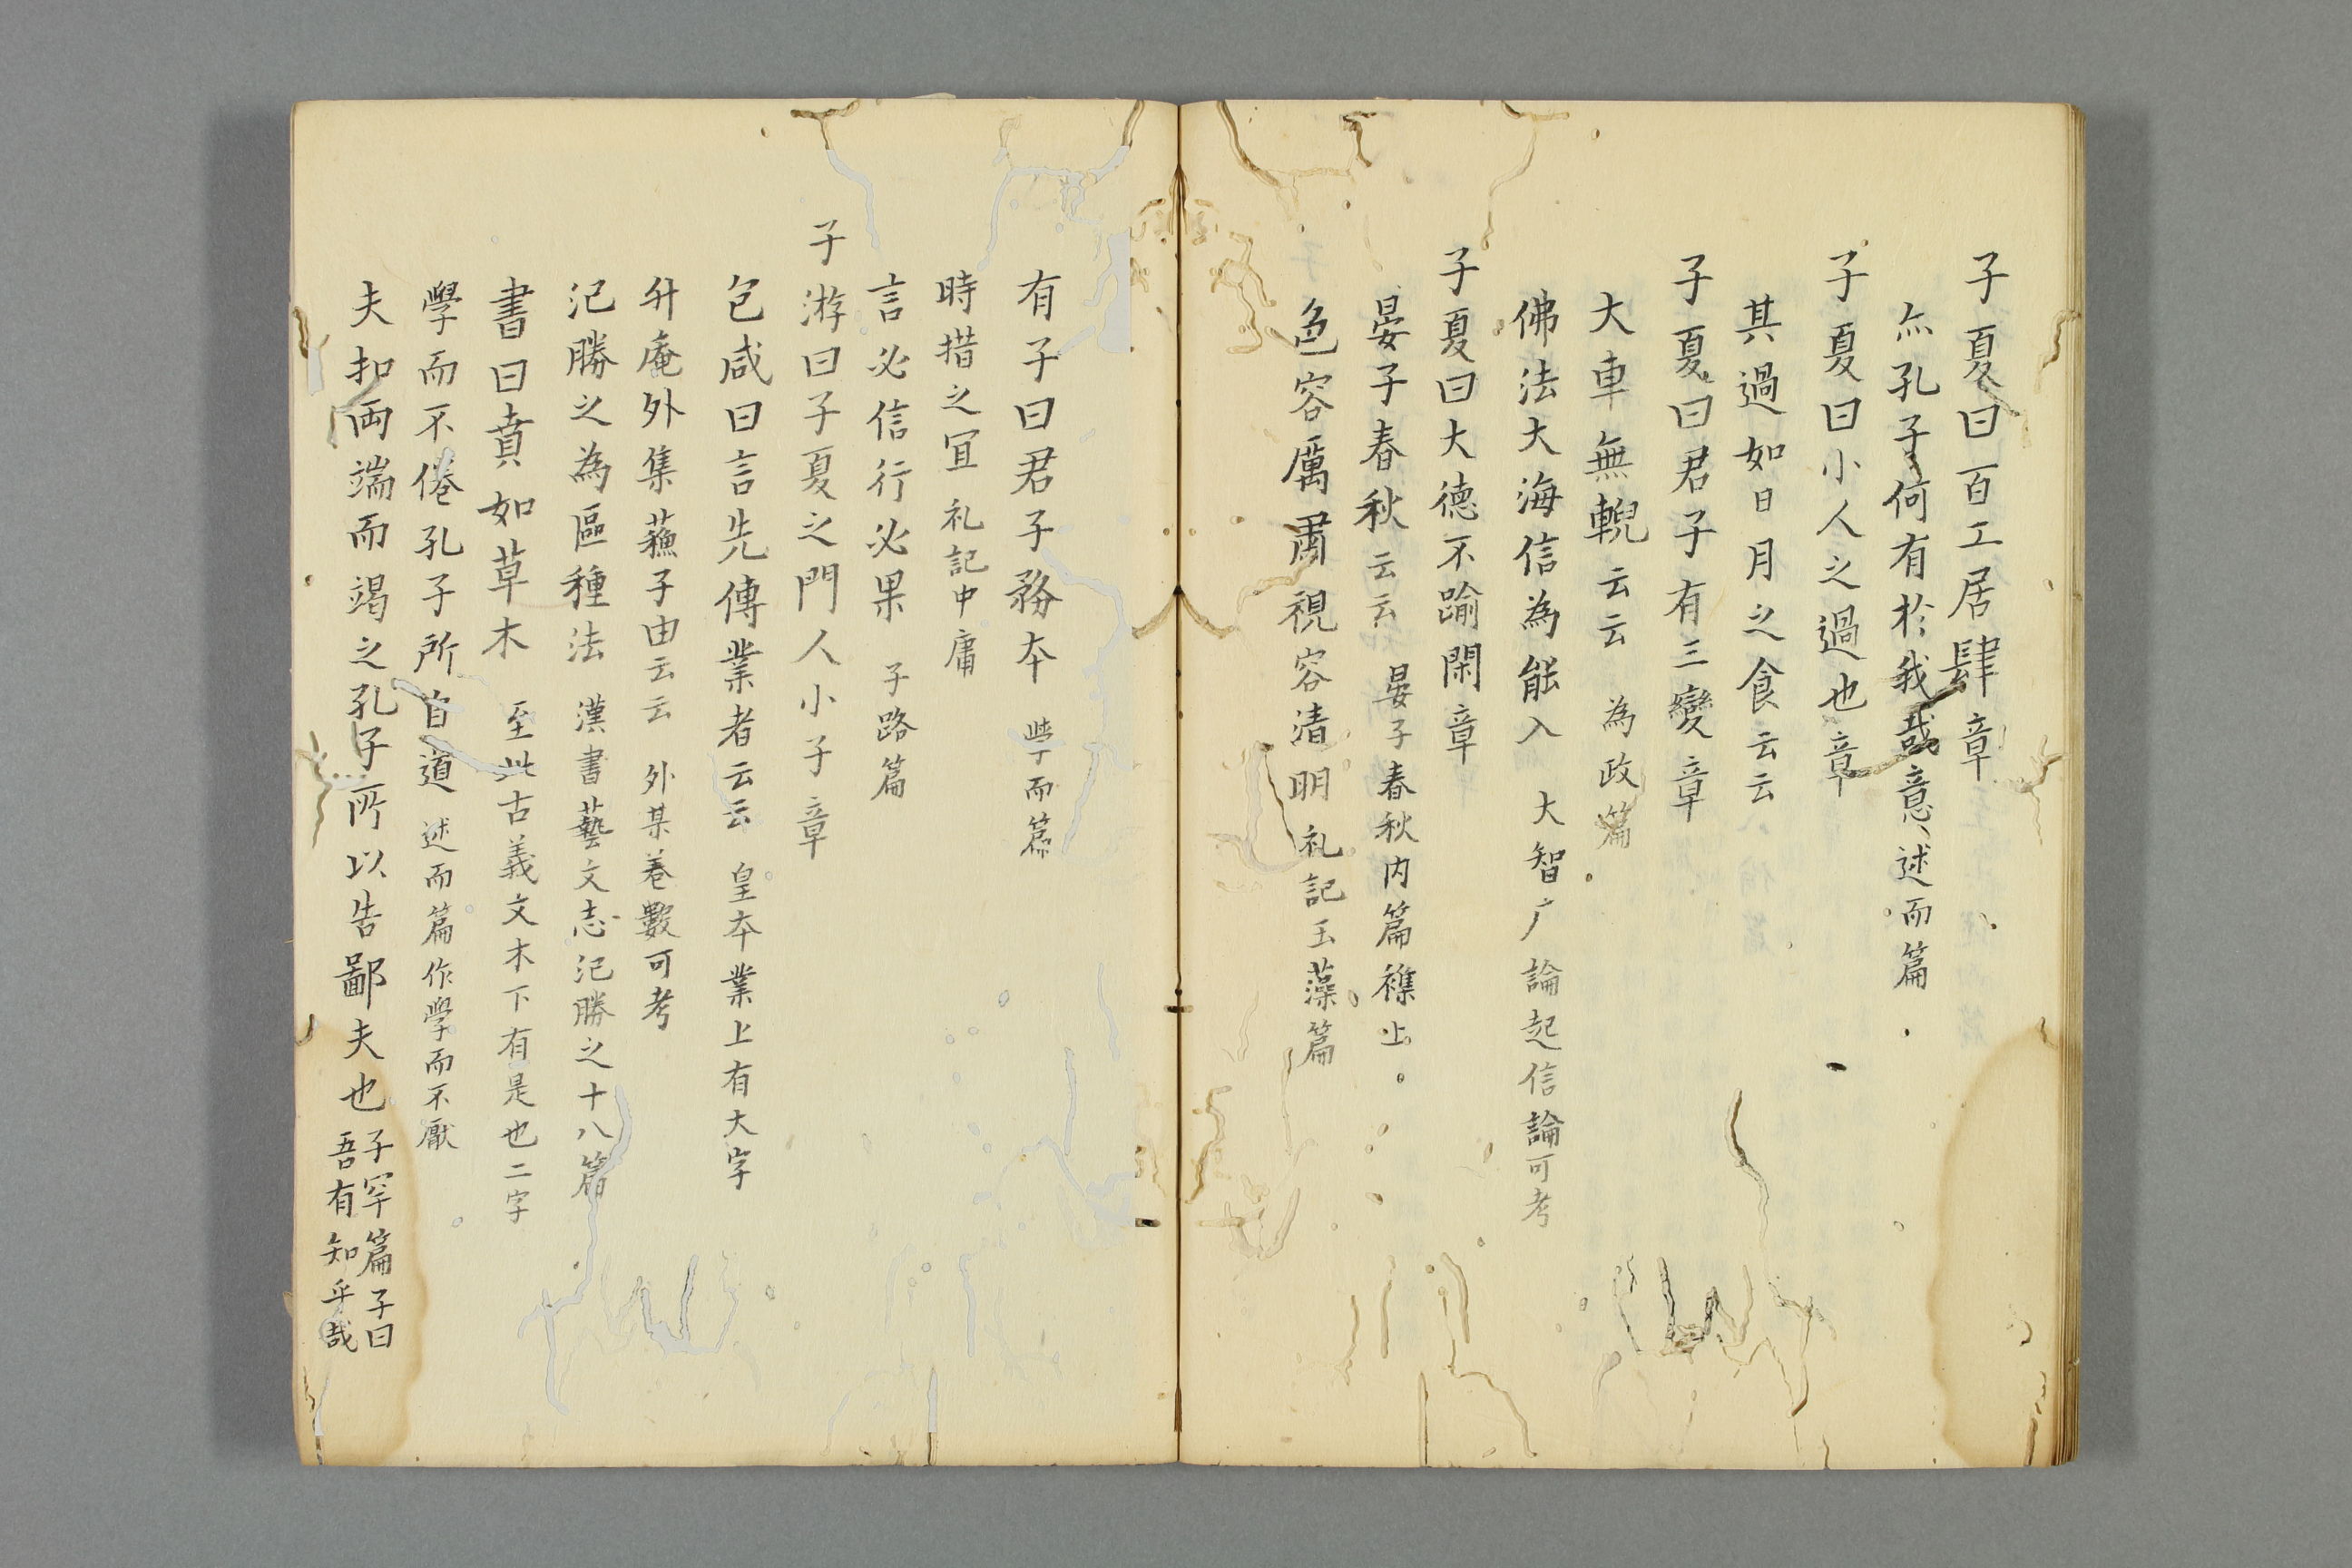 子夏曰百工居肆章
亦孔子何有於我哉意、述而篇
子夏曰小人之過也章
其過如日月之食云云
子夏曰君子有三變章
大車無輗云云 為政篇
佛法大海信為能入 大智广論起信論可考
子夏曰大德不踰閑章
晏子春秋云云 晏子春秋内篇襍上。
色容厲肅視容清明 礼記玉藻篇
有子曰君子務本 学而篇
時措之宜 礼記中庸
言必信行必果 子路篇
子游曰子夏之門人小子章
包咸曰言先傳業者云云 皇本業上有大字
升庵外集蘓子由云云 外某巻數可考
氾勝之為區種法 漢書藝文志氾勝之十八篇
書曰賁如草木 至此古義文木下有是也二字
學而不倦孔子所自道 述而篇作學而不厭
夫扣両端而竭之孔子所以告鄙夫也 子罕篇子曰
吾有知乎哉